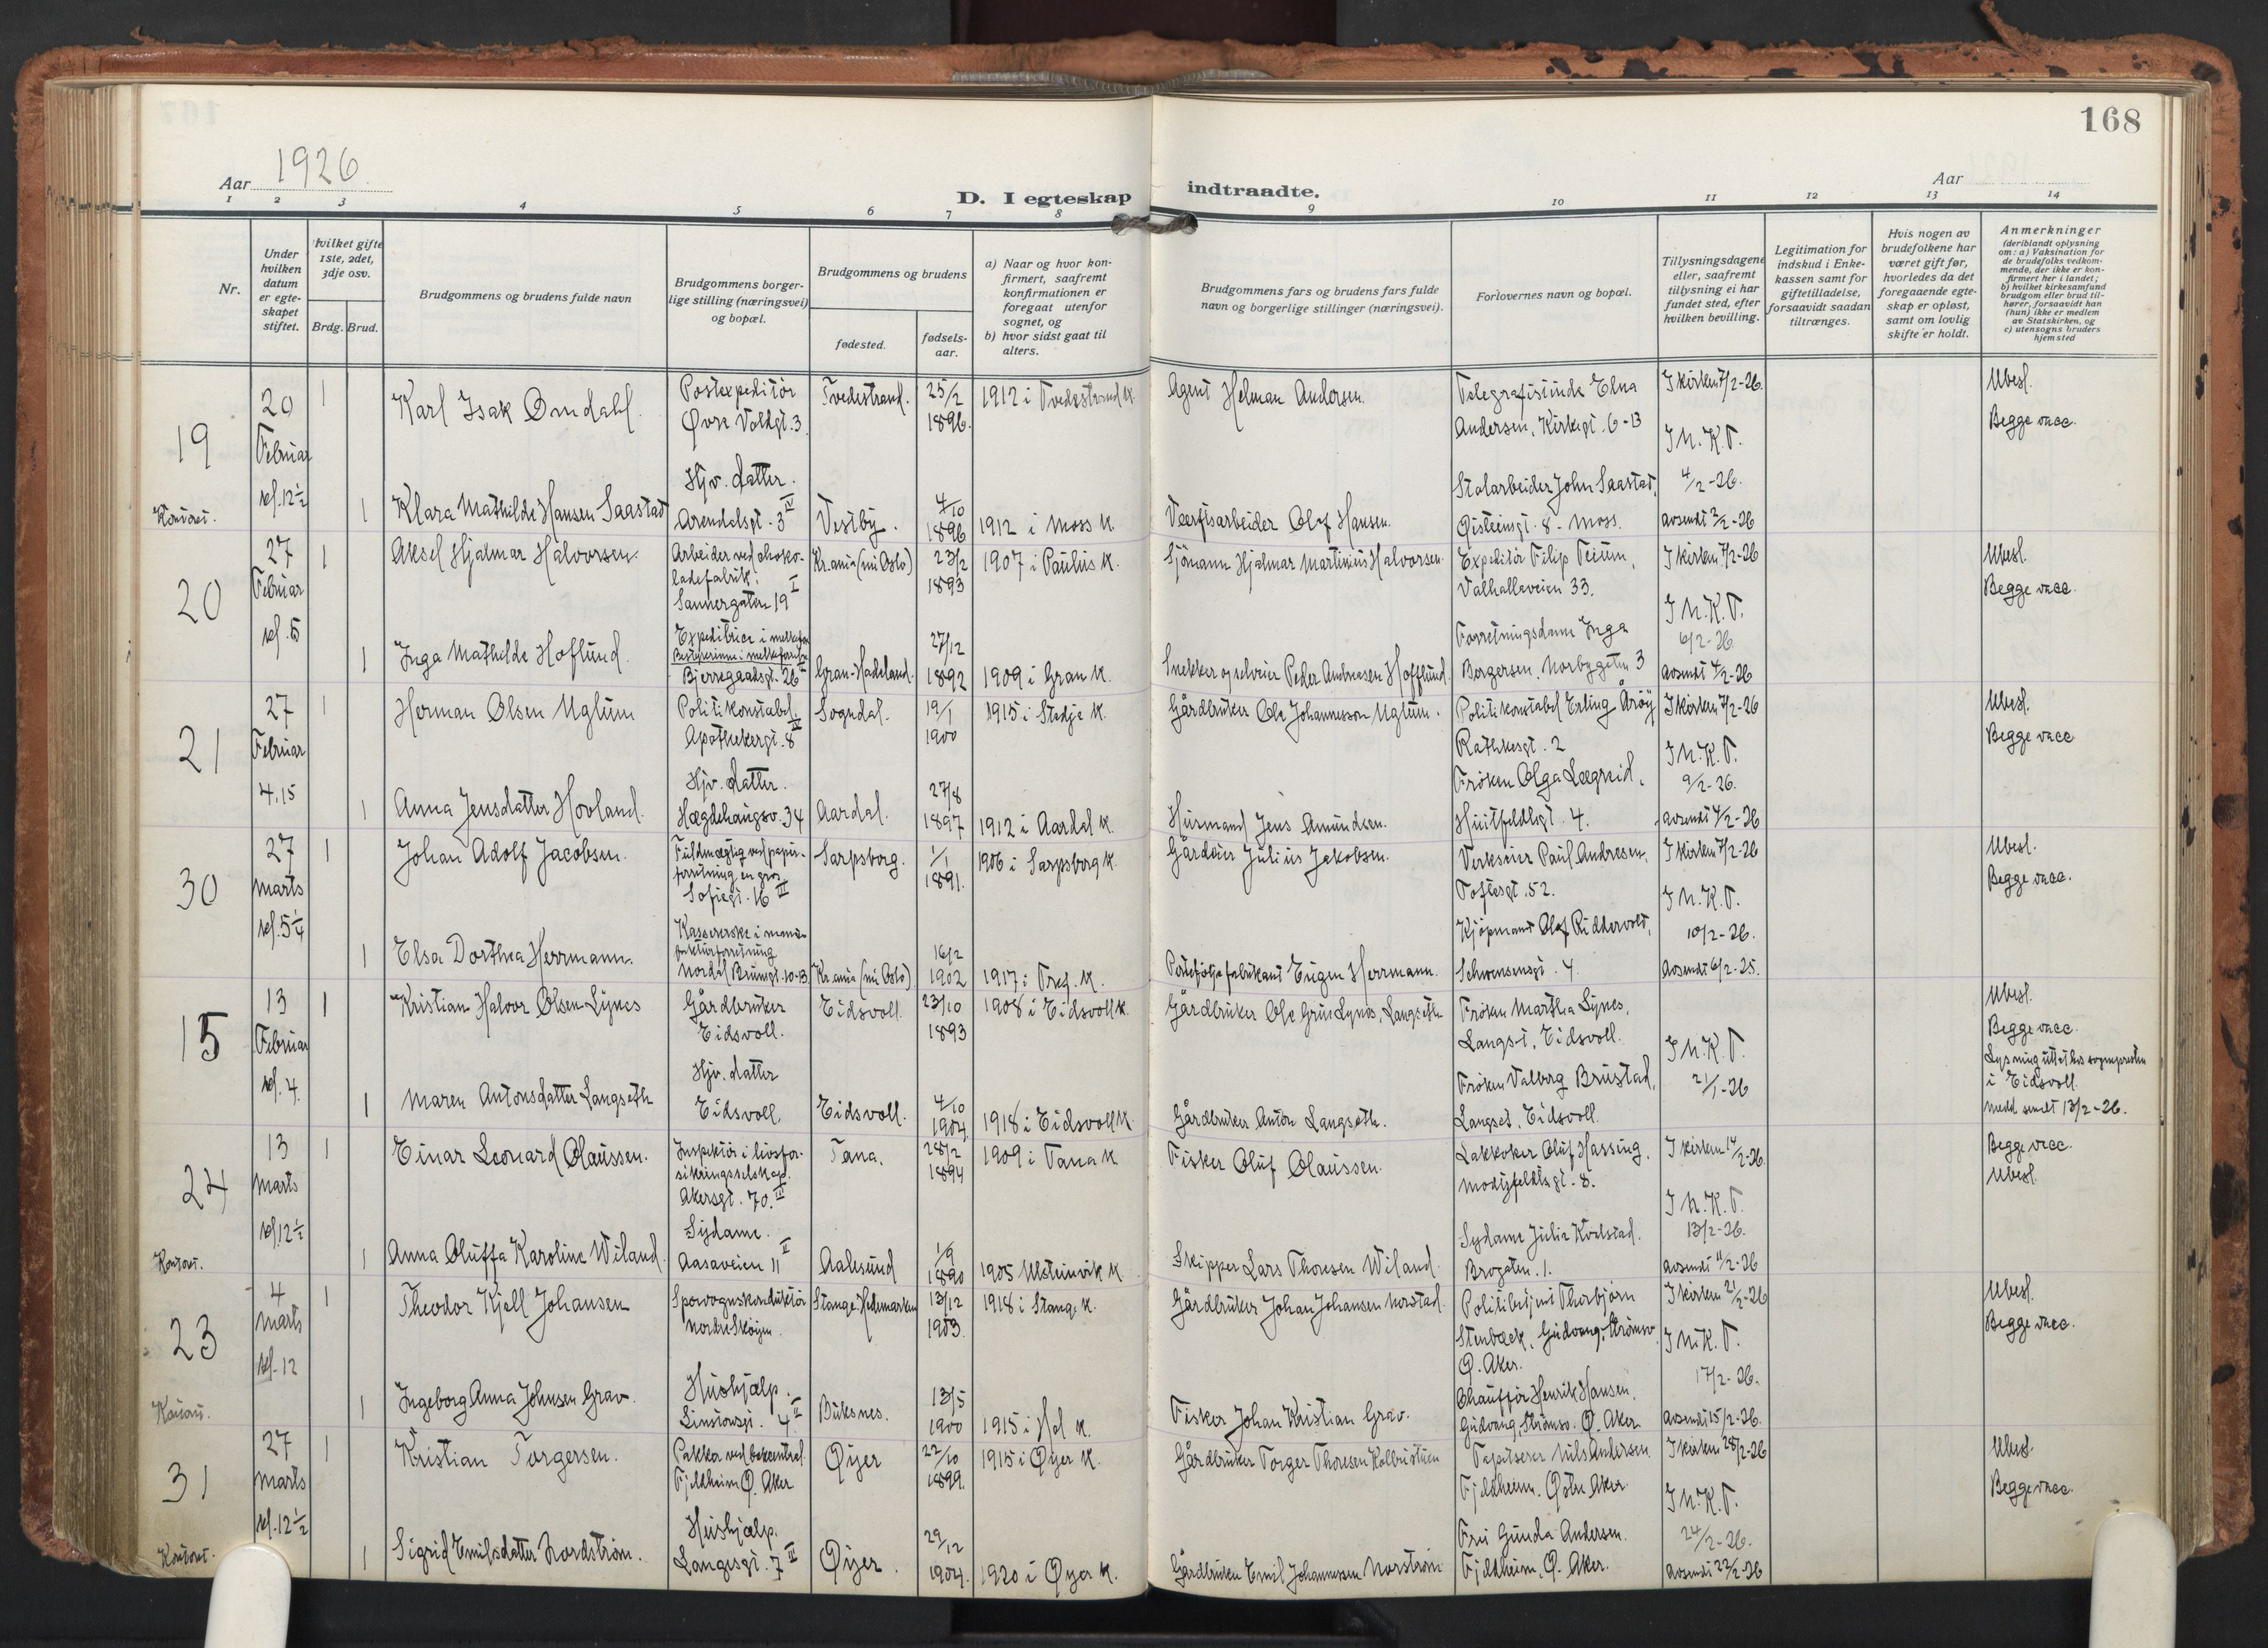 168
Aar 1926.
D. I egteskap indtraadte.
Aar
1 2 3 4 5 6 7 8 9 10 11 12 13 14
Nr.
Under hvilken datum er egteskapet stiftet.
Hvilket gifte 1ste, 2det, 3dje osv.
Brdg. Brud.
Brudgommens og brudens fulde navn
Brudgommens borgerlige stilling (næringsvei) og bopæl.
Brudgommens og brudens
fødested.
fødselsaar.
a) Naar og hvor konfirmert, saafremt konfirmationen er foregaat utenfor sognet, og
b) hvor sidst gaat til alters.
Brudgommens fars og brudens fars fulde navn og borgerlige stillinger (næringsvei).
Forlovernes navn og bopæl.
Tillysningsdagene eller, saafremt tillysning ei har fundet sted, efter hvilken bevilling.
Legitimation for indskud i Enkekassen samt for giftetilladelse, forsaavidt saadan tiltrænges.
Hvis nogen av brudefolkene har været gift før, hvorledes da det foregaaende egteskap er opløst, samt om lovlig skifte er holdt.
Anmerkninger
(deriblandt oplysning om: a) Vaksination for de brudefolks vedkommende, der ikke er konfirmert her i landet; b) hvilket kirkesamfund brudgom eller brud tilhører, forsaavidt han (hun) ikke er medlem av Statskirken, og c) utensogns bruders hjemsted
19
20 Februar kl. 12½
Kontoret.
1 Karl Isak Omdahl.
Postexpeditør
Øvre Voldgt. 3.
Tvedestrand.
25/2 1896.
1912 i Tvedestrand k.
Agent Helman Andersen.
Telegrafistinde Elna
Andersen, Kirkegt. 6-13
I kirken 7/2-26.
I N.K.T.
4/2-26.
avsendt 2/2-26
Ubesl.
Begge vacc.
1 Klara Mathilde Hansen Saastad
Hjv. datter.
Arendalsgt. 3 IV
Vestby.
4/10 1896
1912 i Moss k.
Værftsarbeider Olaf Hansen.
Stalarbeider John Saastad,
Øisteinsgt. 8 - Moss.
20
27 Februar kl. 5
1 Aksel Hjalmar Halvorsen.
Arbeider ved chokoladefabrik.
Sannergaten 19 I
Kr.ania (nu Oslo)
23/2 1893
1907 i Paulus k.
Sjømann Hjalmar Martinius Halvorsen.
Expeditør Filip Teium,
Valhallaveien 33.
I kirken 7/2-26
I N.K.T.
6/2-26.
avsendt 4/2-26
Ubesl.
Begge vacc.
1 Inga Mathilde Hoflund.
Expeditrice i
Bestyrerinne i
Bjerregaardsgt. 26
Gran-Hadeland.
27/12 1892
1909 i Gran k.
Snekker og selveier Peder Andreasen Hofflund.
Forretningsdame Inga
Bergersen, Norbygaten 3
21
27 Februar 4.15
1 Herman Olsen Uglum
Politikonstabel
Apothekergt. 8 IV
Sogndal.
19/1 1900
1915 i Stedje k.
Gårdbruker Ole Johannesson Uglum.
Politikonstabel Erling Årøy
Rathkesgt. 2
I kirken 7/2-26
I N.K.T.
9/2-26.
avsendt 4/2-26
Ubesl.
Begge vacc
1 Anna Jensdatter Hovland.
Hjv. datter.
Hægdehaugsv. 34
Aardal.
27/8 1897
1912 i Aardal k.
Husmand Jens Amundsen.
Frøken Olga Lægreid,
Huitfeldtsgt. 4.
30
27 Marts kl. 5¼
1 Johan Adolf Jacobsen.
Fuldmægtig ved papirforretning en gros
Sofiegt. 16 III
Sarpsborg.
1/1 1891.
1906 i Sarpsborg k.
Gårdeier Julius Jakobsen.
Verkseier Paul Andresen,
Toftesgt. 52.
I kirken 7/2-26
I N.K.T.
10/2-26.
avsendt 6/2-25.
Ubesl.
Begge vacc.
1 Elsa Dorthea Herrmann.
Kassererske i manufakturforretning
Nordal Brunsgt. 10-13
Kr.ania (nu Oslo)
16/2 1902
1917 i Tref. k.
Portefølgefabrikant Eugen Herrmann.
Kjøpmand Olaf Riddervold,
Schwensensgt. 4.
15
13 Februar kl. 4.
1 Kristian Halvor Olsen Lynes
Gårdbruker
Eidsvoll.
Eidsvoll.
23/10 1893
1908 i Eidsvoll k.
Gårdbruker Ole Lynes, Langseth
Frøken Marthea Lynes,
Langset, Eidsvoll.
I N.K.T.
21/1-26
Ubesl.
Begge vacc.
Lysning uttat hos sognepresten
i Eidsvoll.
medd. sendt 13/2-26.
1 Maren Antonsdatter Langseth
Hjv. datter
Eidsvoll,
Eidsvoll.
4/10 1904.
1918 i Eidsvoll k.
Gårdbruker Anton Langseth.
Frøken Valborg Brustad,
Langset, Eidsvoll.
24
13 Marts kl. 12½
Kontoret.
1 Einar Leonard Olaussen.
Inspektør i livsforsikringsselskap.
Akersgt. 70. III
Tana.
28/2 1894
1909 i Tana k
Fisker Oluf Olaussen.
Lakkoker Oluf Hassing,
Motzfeldtsgt. 8.
I kirken 14/2-26.
I N.K.T.
13/2-26.
avsendt 11/2-26
Begge vacc.
Ubesl.
1 Anna Oluffa Karoline Wiland.
Sydame.
Aasaveien 11 II
Aalesund
1/9 1890
1905 Ulsteinvik k
Skipper Lars Thoresen Wiland.
Sydame Julie Kvelstad.
Brogaten. 1.
23
4 Marts kl. 12
Kontoret.
1 Theodor Kjell Johansen
Sporvognskonduktør
Nordre Skøyen.
Stange, Hedemarken
13/12 1903.
1918 i Stange k.
Gårdbruker Johan Johansen Norstad.
Politibetjent Thorbjørn
Stenbæck, Gudvang, Strømsv.
Ø. Aker.
I kirken 21/2-26
I N.K.T.
17/2-26.
avsendt 15/2-26.
Ubesl.
Begge vacc.
1 Ingeborg Anna Johnsen Grav.
Hushjælp.
Linstowsgt. 4 II
Buksnes.
13/5 1900
1915 i Hol k.
Fisker Johan Kristian Grav.
Chauffør Henrik Hansen,
Gudvang, Strømsv. Ø. Aker
31
27 Marts kl. 12½
Kontoret.
1 Kristian Torgersen.
Pakker ved
Fjeldheim Ø. Aker
Øyer
22/10 1899.
1915 i Øyer k.
Gårdbruker Torger Thoresen Kolbustuen
Tapetserer Nils Andersen.
Fjeldheim. Østre Aker
I kirken 28/2-26
I N.K.T.
24/2-26.
avsendt 22/2-26
Ubesl.
Begge vacc.
1 Sigrid Emilsdatter Nordstrøm.
Hushjælp.
Langesgt. 7 III
Øyer.
29/12 1904.
1920 i Øyer k.
Gårdbruker Emil Johannessen Norstrøm
Fru Gunda Andersen.
Fjeldheim, Ø. Aker.